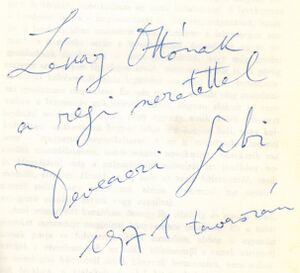 Lévay Ottónak
a régi szeretettel
Devecseri Gabi
1971 tavaszán